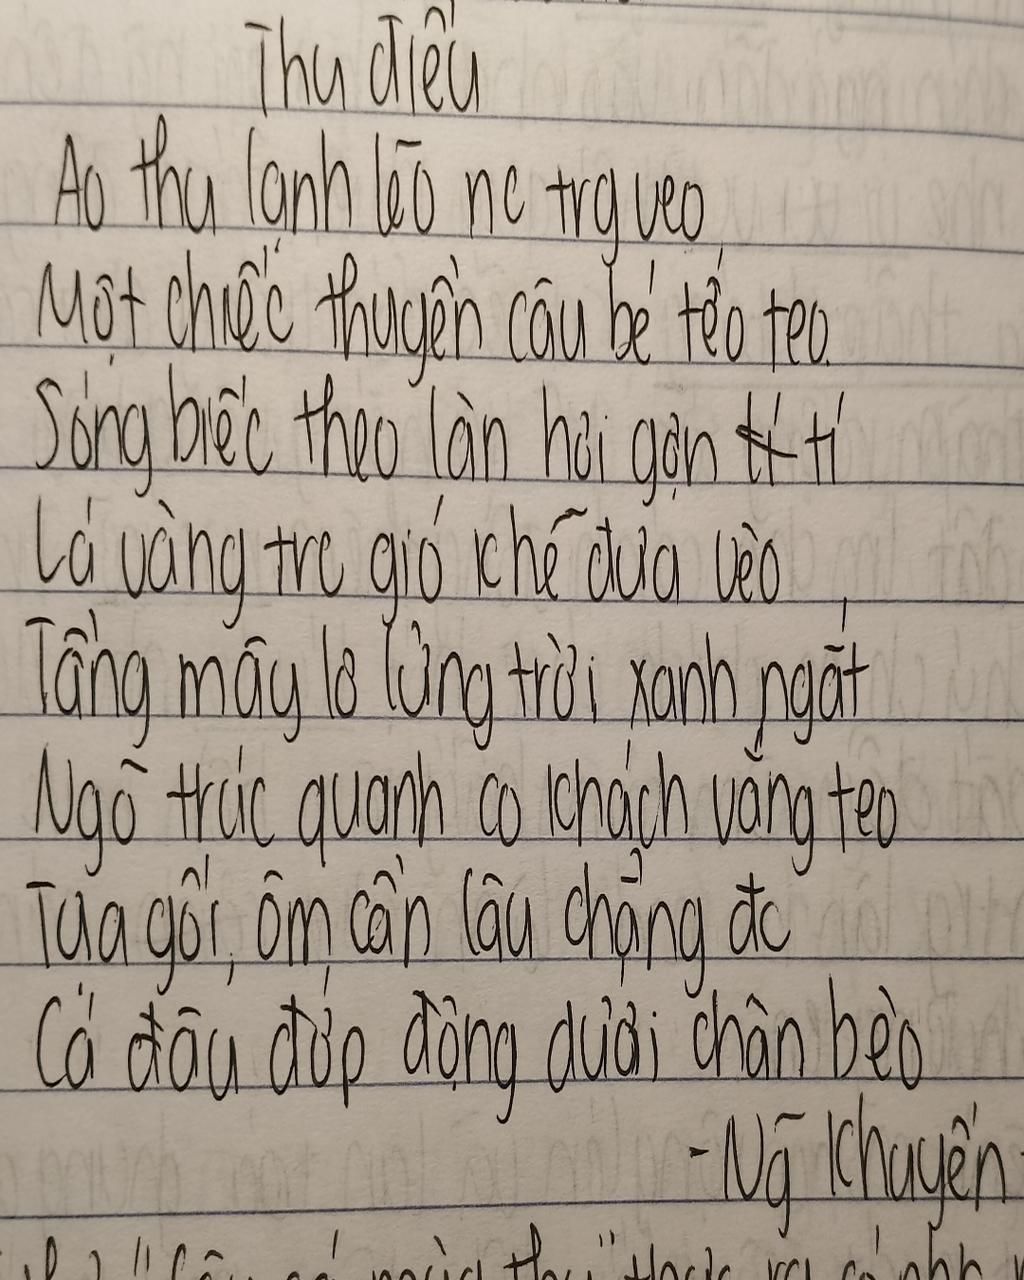 Thu điếu
Ao thu lạnh lẽo nc trg veo
Một chiếc thuyền câu bé tẻo teo.
Sóng biếc theo làn hơi gợn tí
Lá vàng trc gió khẽ đưa vèo
Tầng mây lơ lửng trời xanh ngắt
Ngõ trúc quanh co khách vắng teo
Tựa gối, ôm cần lâu chẳng đc
Cá đâu đớp động dưới chân bèo
- Ng~ Khuyến